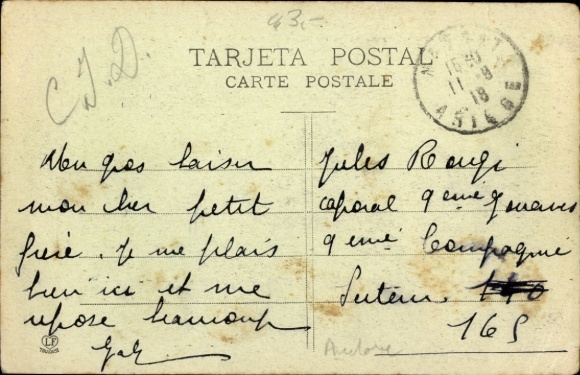 43.-
C.J.D.
TARJETA POSTAL
CARTE POSTALE
11 - 8
18
ARIEGE
Un gros baiser
mon cher petit
frère. Je me plais
bien ici et me
repose beaucoup
Jules Rougi
caporal 9eme Zouaves
9 eme Compagnie
Secteur. 140
165
Andorre
LF
TOULOUSE